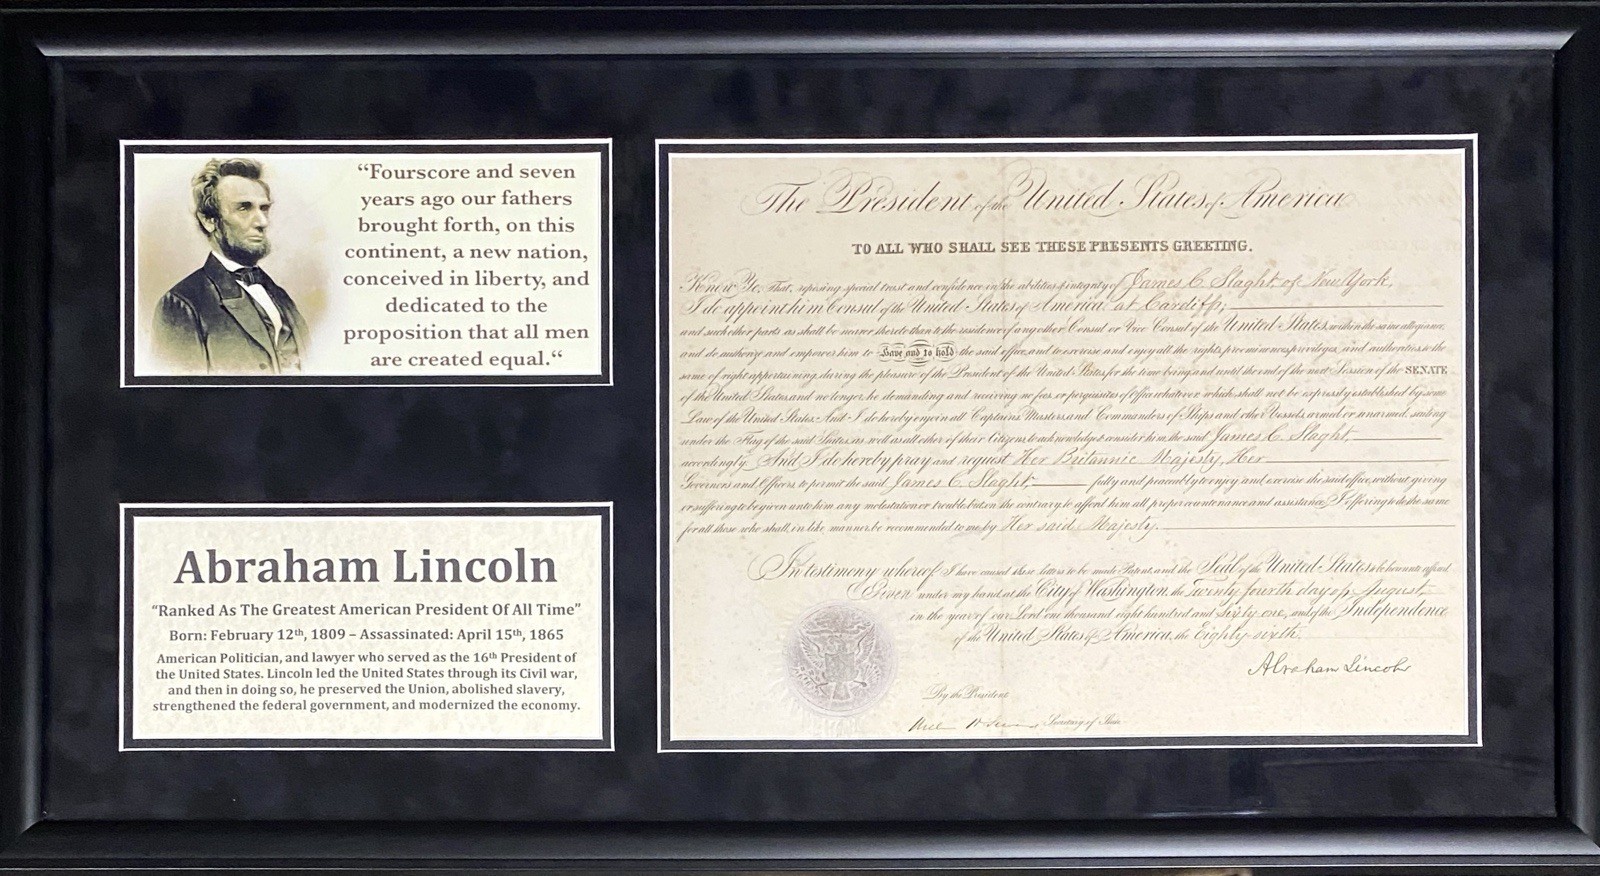 “Fourscore and seven
years ago our fathers
brought forth, on this
continent, a new nation,
conceived in liberty, and
dedicated to the
proposition that all men
are created equal.“
Abraham Lincoln
“Ranked As The Greatest American President Of All Time”
Born: February 12th, 1809 – Assassinated: April 15th, 1865
American Politician, and lawyer who served as the 16th President of
the United States. Lincoln led the United States through its Civil war,
and then in doing so, he preserved the Union, abolished slavery,
strengthened the federal government, and modernized the economy.
The President of the United States of America
TO ALL WHO SHALL SEE THESE PRESENTS GREETING.
Know Ye, That, reposing special trust and confidence in the abilities & integrity of James C. Slaght, of New York,
I do appoint him Consul of the United States of America at Cardiff;
and such other parts as shall be nearer thereto than to the residence of any other Consul or Vice Consul of the United States, within the same allegiance
and do authorize and empower him to Have and to hold the said office, and to exercise and enjoy all the rights, preeminences, privileges, and authorities to the
same of right appertaining, during the pleasure of the President of the United States, for the time being, and until the end of the next Session of the SENATE
of the United States, and no longer, he demanding and receiving no fees, or perquisites of Office whatever which shall not be expressly established by some
Law of the United States. And I do hereby enjoin all Captains, Masters, and Commanders of Ships and other Vessels, armed or unarmed, sailing
under the Flag of the said States, as well as all other of their Citizens, to acknowledge & consider him, the said James C. Slaght,
accordingly. And I do hereby pray and request Her Britannic Majesty, Her
Governors and Officers to permit the said James C. Slaght, fully and peaceably to enjoy and exercise the said office, without giving
or suffering to be given unto him, any molestation or trouble but on the contrary to afford him all proper countenance and assistance; I offering to do the same
for all those who shall, in like manner, be recommended to me by Her said Majesty.
In testimony whereof, I have caused these letters to be made Patent, and the Seal of the United States to be hereunto affixed
Given under my hand, at the City of Washington, the twenty fourth day of August,
in the year of our Lord one thousand eight hundred and sixty one, and of the Independence
of the United States of America, the Eighty sixth.
Abraham Lincoln
By the President
Secretary of State